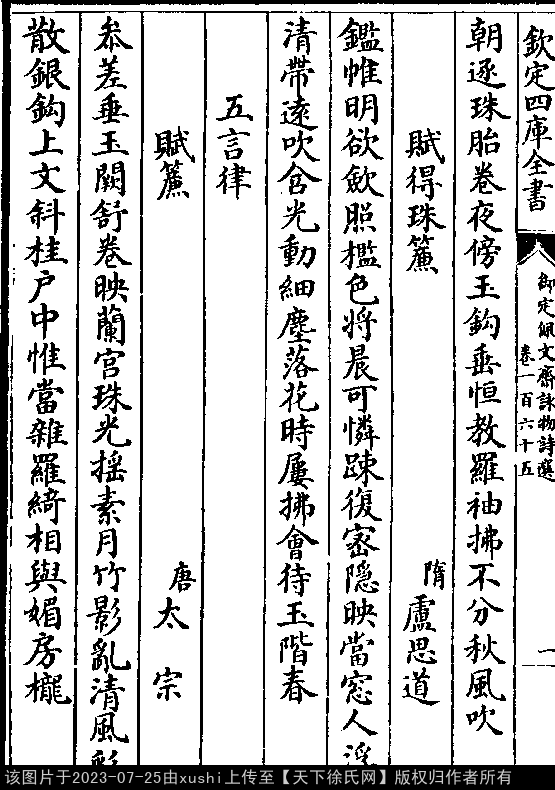 欽定四庫全書
御定佩文齋詠物詩選
卷一百六十五
一
朝逐珠胎卷夜傍玉鈎垂恒教羅袖拂不分秋風吹
賦得珠簾 隋盧思道
鑑帷明欲歛照檻色將晨可憐踈復宻隠映當窓人浮
清帶逺吹含光動細塵落花時屢拂會待玉階春
五言律
賦簾 唐太宗
叅差垂玉闕舒卷映蘭宫珠光揺素月竹影亂清風彩
散銀鈎上文斜桂戶中惟當雜羅綺相與媚房櫳
该图片于2023-07-25由xushi上传至【天下徐氏网】版权归作者所有